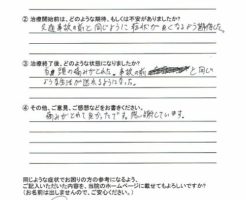 ② 治療開始前は、どのような期待、もしくは不安がありましたか?
交通事故の前と同じように症状が良くなるよう期待した。
③ 治療終了後、どのような状態になりましたか?
首・腰の痛みがとれた。事故の前と同じ
ような生活が送れるようになった。
④ その他、ご意見、ご感想などをお書きください。
痛みがとれて良かったです。感謝しています。
同じような症状でお困りの方の参考になるよう、
ご記入いただいた内容を、当院のホームページに載せてもよろしいですか?
(お名前は出しませんので、ご安心ください。)